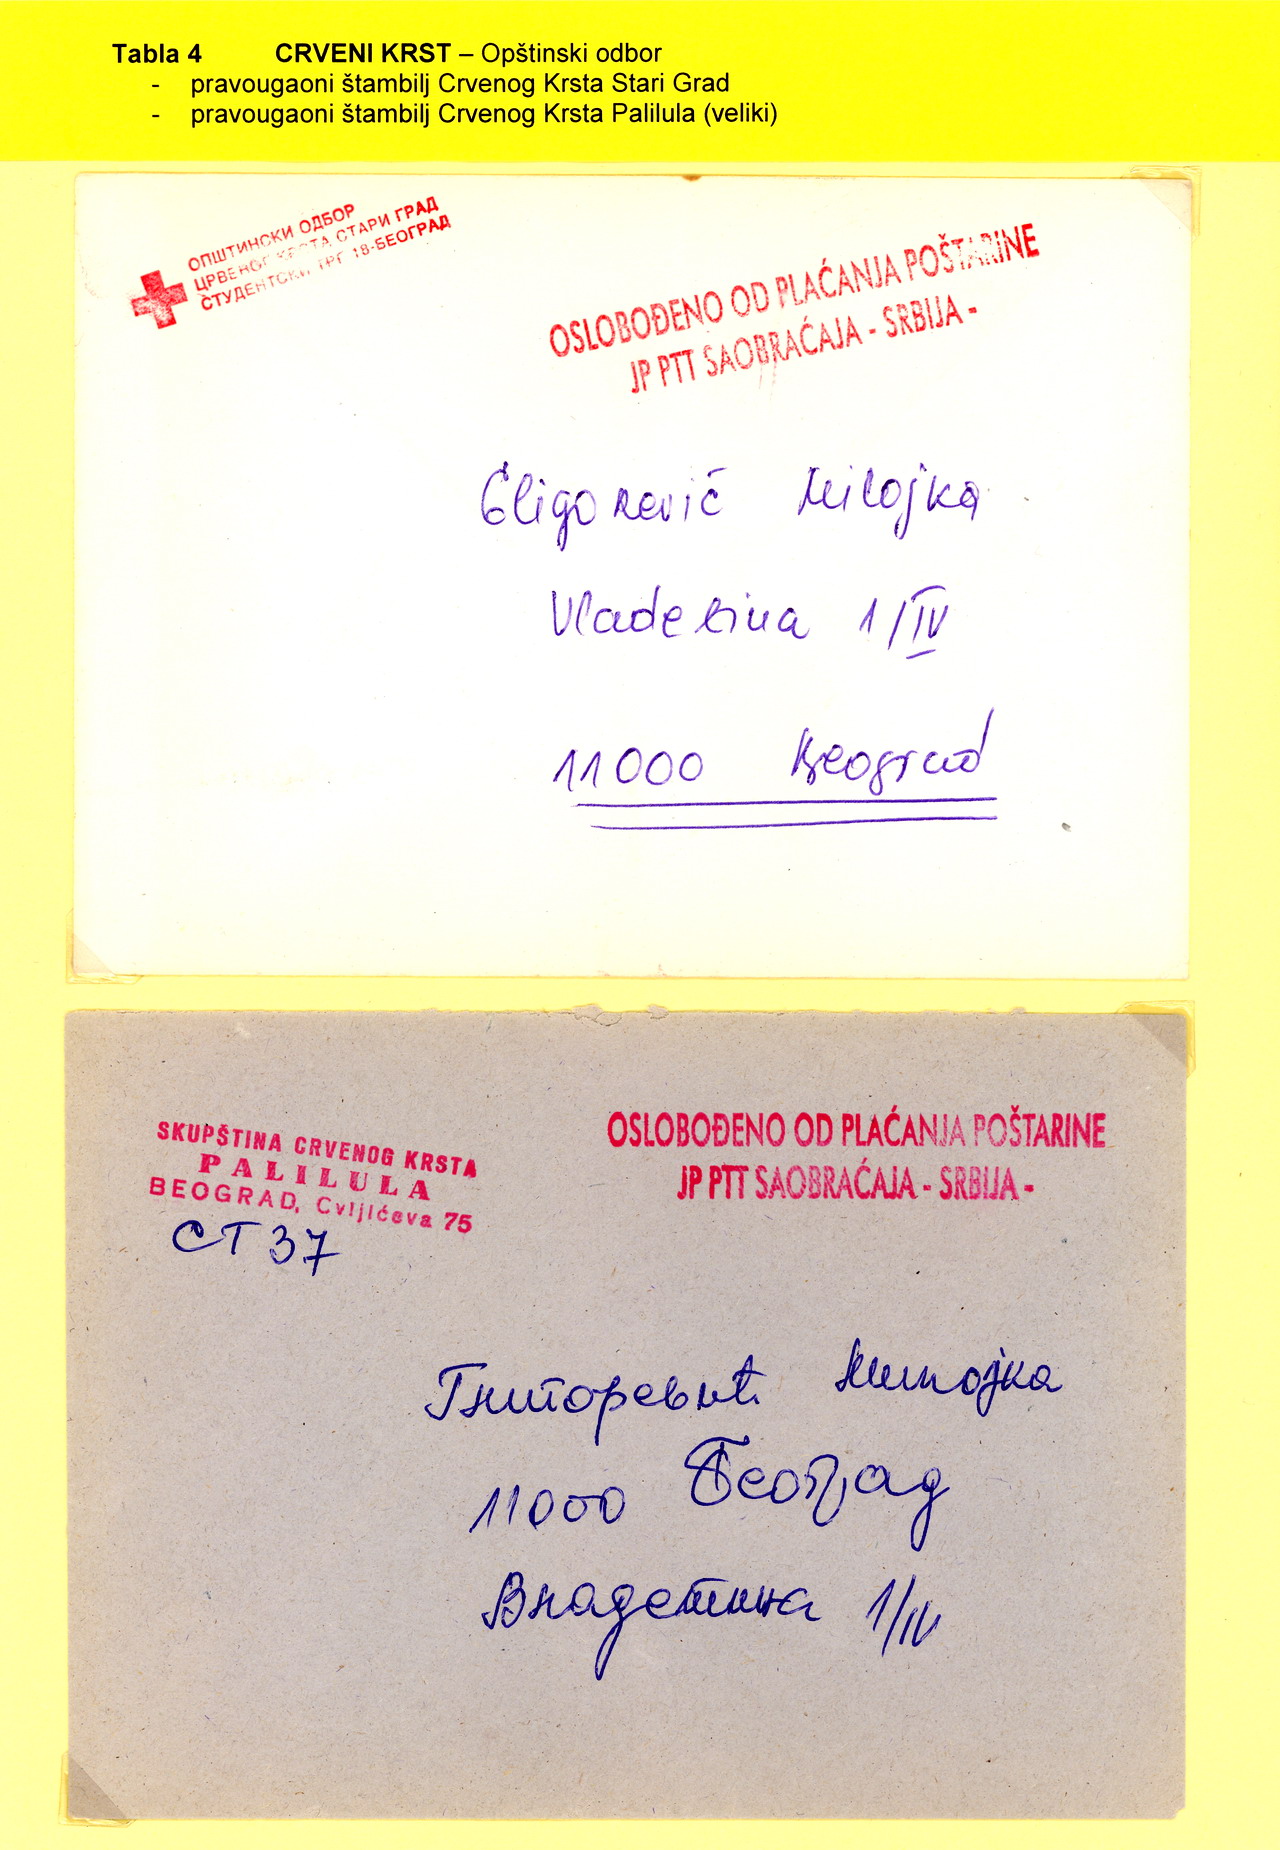 Tabla 4 CRVENI KRST – Opštinski odbor
- pravougaoni štambilj Crvenog Krsta Stari Grad
- pravougaoni štambilj Crvenog Krsta Palilula (veliki)
ОПШТИНСКИ ОДБОР
ЦРВЕНОГ КРСТА СТАРИ ГРАД
СТУДЕНТСКИ ТРГ 18-БЕОГРАД
OSLOBOĐENO OD PLAĆANJA POŠTARINE
JP PTT SAOBRAĆAJA - SRBIJA -
Gligorević Milojka
Vladetina 1/IV
11000 Beograd
SKUPŠTINA CRVENOG KRSTA
PALILULA
BEOGRAD, Cvijićeva 75
СТ 37
OSLOBOĐENO OD PLAĆANJA POŠTARINE
JP PTT SAOBRAĆAJA - SRBIJA -
Глигоревић Милојка
11000 Београд
Владетина 1/IV